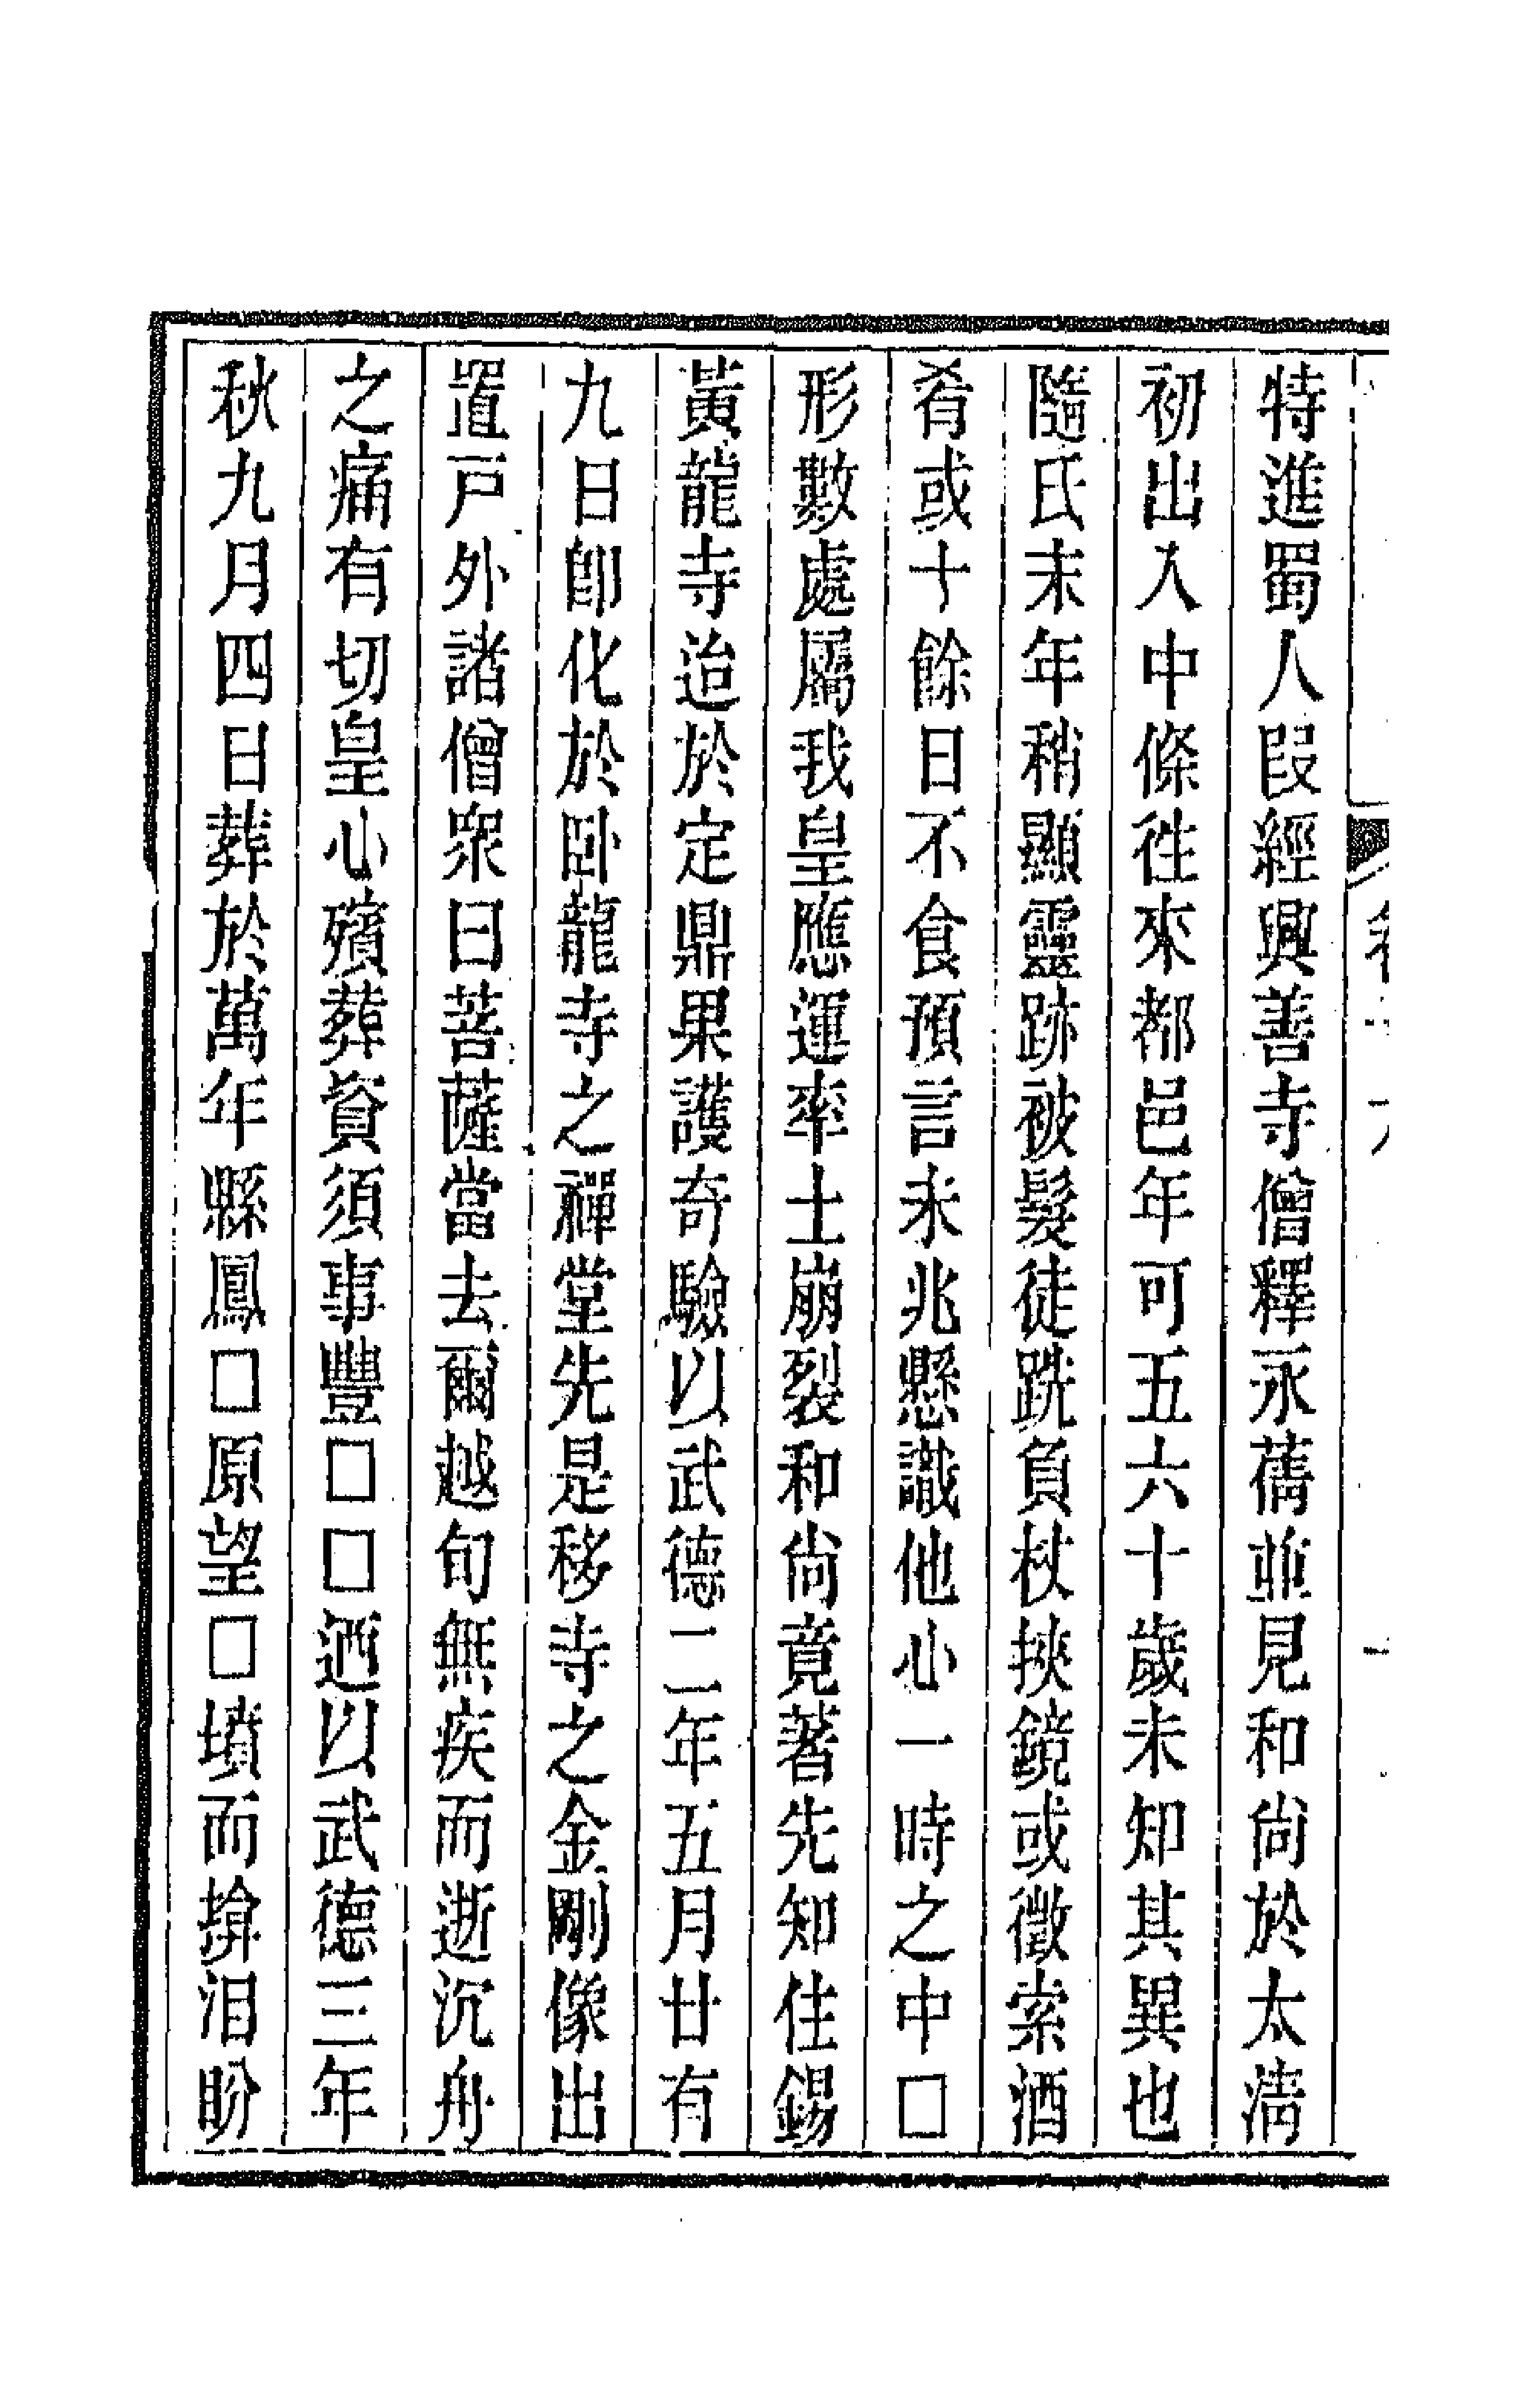 特進蜀人段經興善寺僧釋永蒨並見和尚於太淸
初出入中條往來都邑年可五六十歲未知其異也
隨氏末年稍顯靈跡被髮徒跣負杖挾鏡或徵索酒
肴或十餘日不食預言未兆懸識他心一時之中□
形數處屬我皇應運率土崩裂和尚竟著先知住錫
黃龍寺迨於定鼎果護奇驗以武德二年五月廿有
九日卽化於卧龍寺之禪堂先是移寺之金剛像出
置戸外諸僧眾曰菩薩當去爾越旬無疾而逝沉舟
之痛有切皇心殯葬資須事豐□□迺以武德三年
秋九月四日葬於萬年縣鳳□原望□墳而揜泪盼